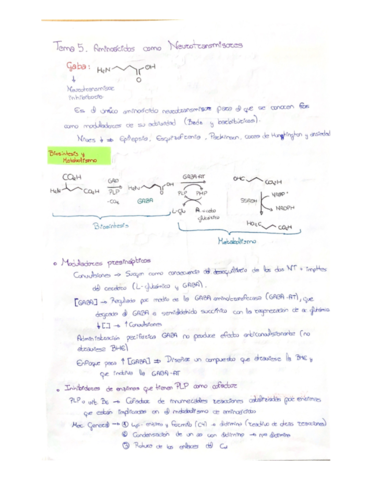 Tema 5. Aminoácidos como Neurotransmisores
Gaba: H2N OH
O
Neurotransmisor
Inhibitorio
Es el único aminoácido neurotransmisor para el que se conocen
como moduladores de su actividad (Bzds y barbitúricos).
Niveles ↓ Epilepsia, Esquizofrenia, Parkinson, corea de Huntington y ansiedad
Biosíntesis y
Metabolismo
CO2H
H2N CO2H
GAD
PLP
-CO2
H2N OH
GABA
GABA-AT
PLP PMP
L-glu
glutárico
OHC CO2H
SSADH
NADP+
NADPH
HO2C CO2H
Biosíntesis
Metabolismo
Moduladores presinápticos
Convulsiones → Surgen como consecuencia del desequilibrio de los dos NT
del cerebro (L-glutámico y GABA).
[GABA] → Regulada por medio de la GABA aminotransferasa (GABA-AT), que
degrada el GABA a semialdehído succínico con la
↓ [ ] → ↑ Convulsiones
Administración periférica GABA no produce efecto anticonvulsionante (no
atraviesa BHE)
Enfoque para ↑ [GABA] → Diseñar un compuesto que atraviese la BHE y
que inhiba la GABA-AT
Inhibidores de enzimas que tienen PLP como cofactor
PLP o vit. B6 → Cofactor de innumerables reacciones catalizadas por enzimas
que están implicadas en el metabolismo de aminoácidos
Mec General → ①
② Condensación de un aa con
③ Rotura de los enlaces del Cα